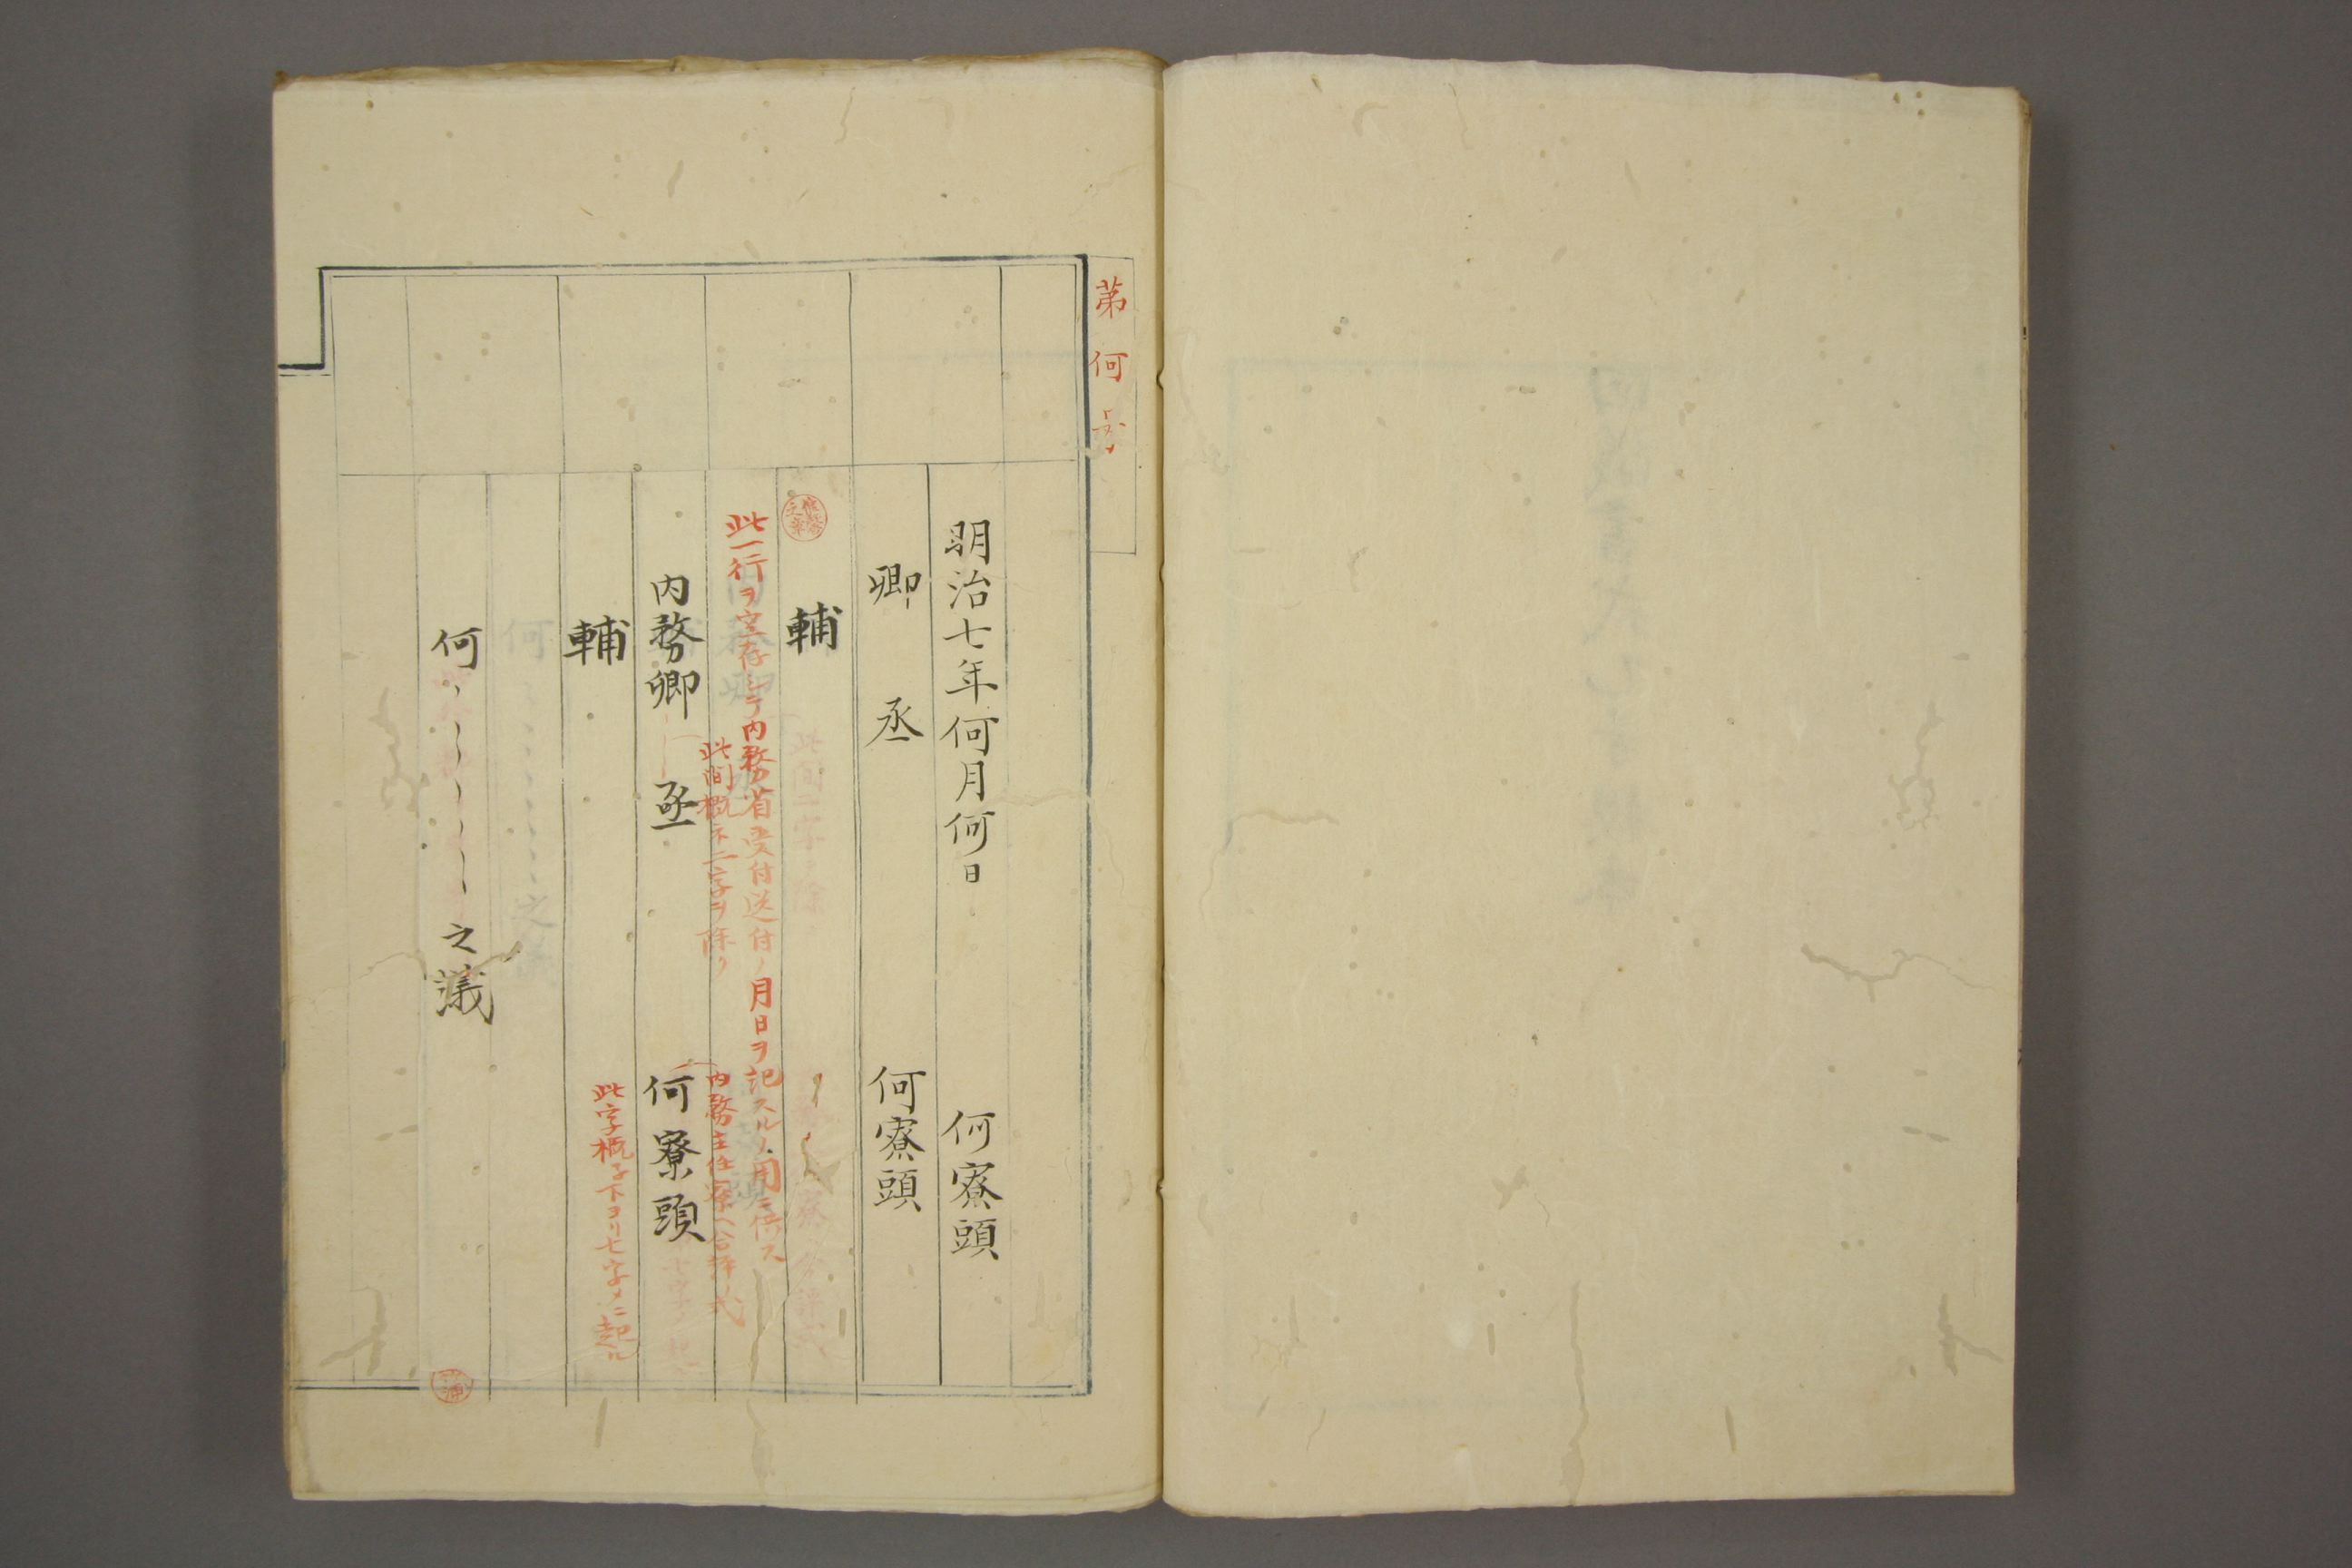 第何号
明治七年何月何日　何寮頭
卿　丞　何寮頭
輔
此一行ヲ空存シテ内務省受付送付ノ月日ヲ記スルノ用ニ供ス
此間概ネ二字ヲ除ク
内務主任寮ヘ合議ノ式
内務卿　丞　何寮頭
輔
此字概子下ヨリ七字メニ起ル
何、、、、、、、之議